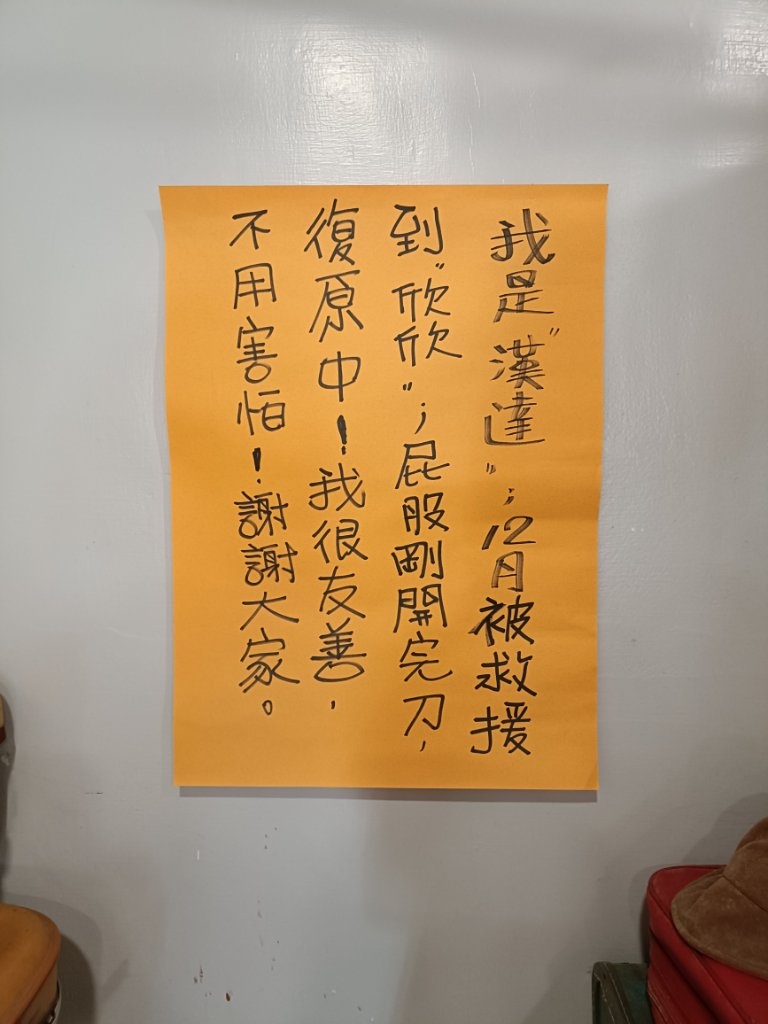 我是"漢達"；12月被救援
到"欣欣"；屁股剛開完刀，
復原中！我很友善，
不用害怕！謝謝大家。